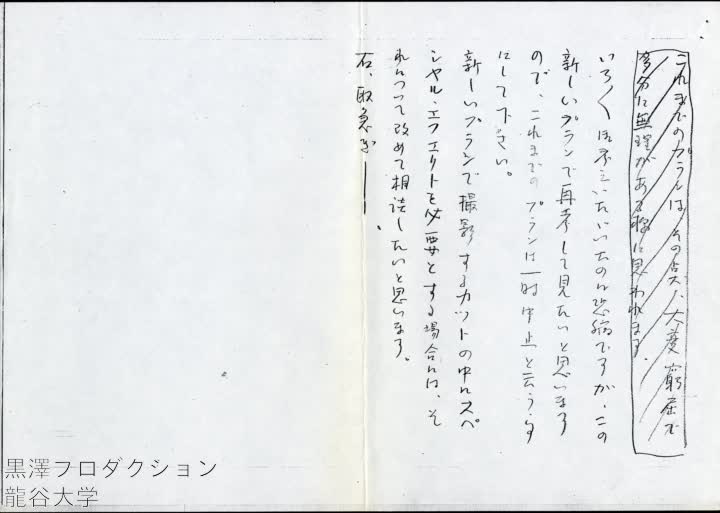 これまでのプランは、その点、大変窮屈で
多分に無理がある様に思われます。
いろ〱御手数いたゞいたのに恐縮ですが、この
新しいプランで再考して見たいと思います
ので、これまでのプランは一時中止と云う事
にして下さい。
新しいプランで撮影するカットの中にスペ
シャル・エフェクトを必要とする場合には、そ
れについて改めて相談したいと思います。
右、取急ぎ──。
黒澤プロダクション
龍谷大学